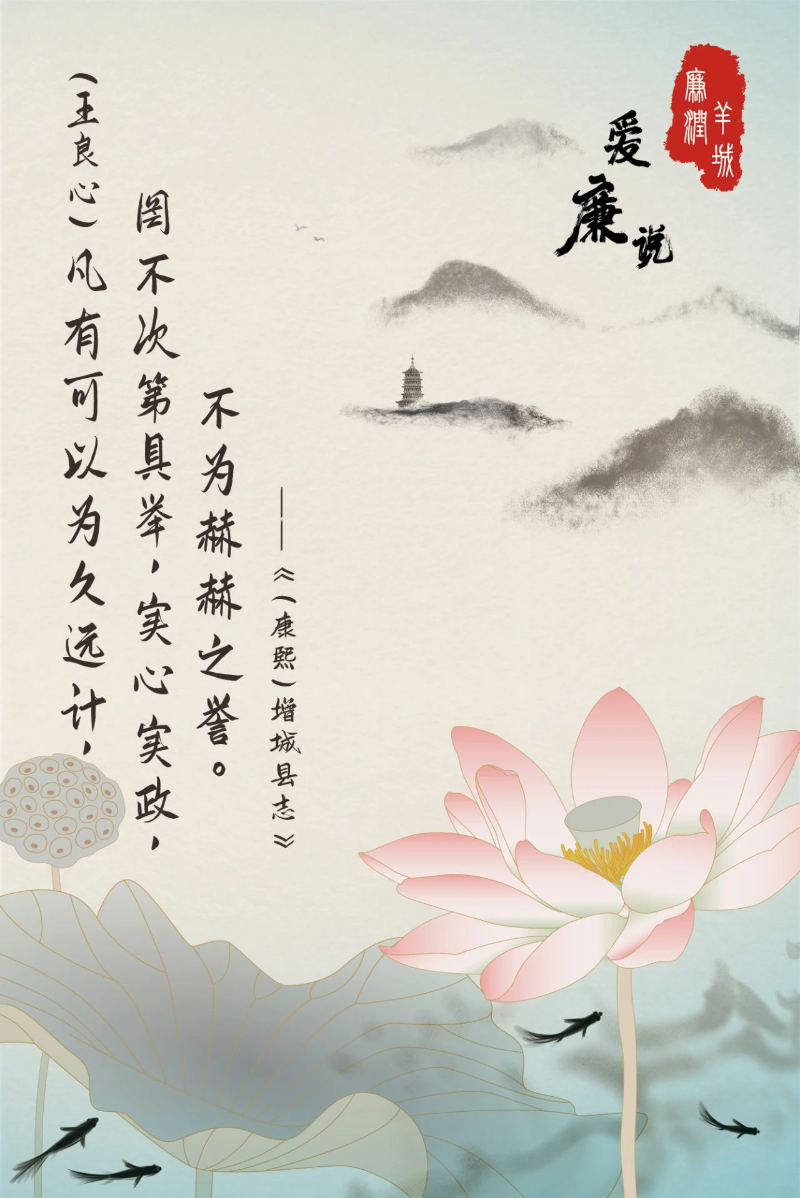 廉润
羊城
爱廉说
(王良心)凡有可以为久远计,
罔不次第具举,实心实政,
不为赫赫之誉。
——《(康熙)增城县志》